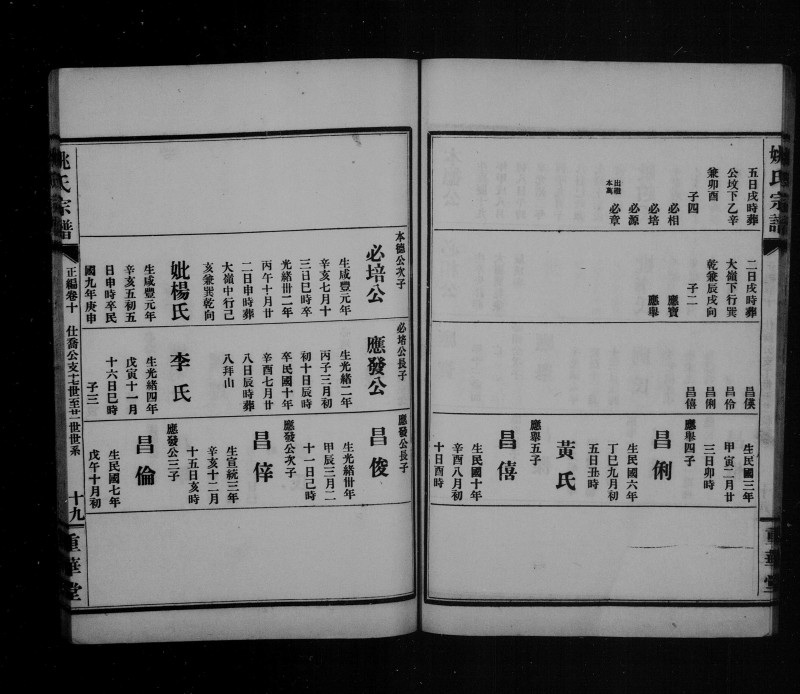 姚氏宗譜
五日戌時葬
公坟下乙辛
兼卯酉
子四
必相
必培
必源
出繼本萬
必章
二日戌時葬
大嶺下行巽
乾兼辰戌向
子二
應寶
應舉
昌僕
昌伶
昌俐
昌僖
生民國三年
甲寅二月廿
三日卯時
應舉四子
昌俐
生民國六年
丁巳九月初
五日丑時
黃氏
應舉五子
昌僖
生民國十年
辛酉八月初
十日酉時
重華堂
本德公次子
必培公
生咸豐元年
辛亥七月十
三日巳時卒
光緒卅二年
丙午十月廿
二日申時葬
大嶺中行己
亥兼巽乾向
妣楊氏
生咸豐元年
辛亥五初五
日申時卒民
國九年庚申
必培公長子
應發公
生光緒二年
丙子三月初
初十日辰時
卒民國十年
辛酉七月廿
八日辰時葬
八拜山
李氏
生光緒四年
戊寅十一月
十六日巳時
子三
應發公長子
昌俊
生光緒卅年
甲辰三月二
十一日己時
應發公次子
昌倖
生宣統三年
辛亥十二月
十五日亥時
應發公三子
昌倫
生民國七年
戊午十月初
姚氏宗譜
正編卷十
仕喬公支十七世至廿一世世系
十九
重華堂